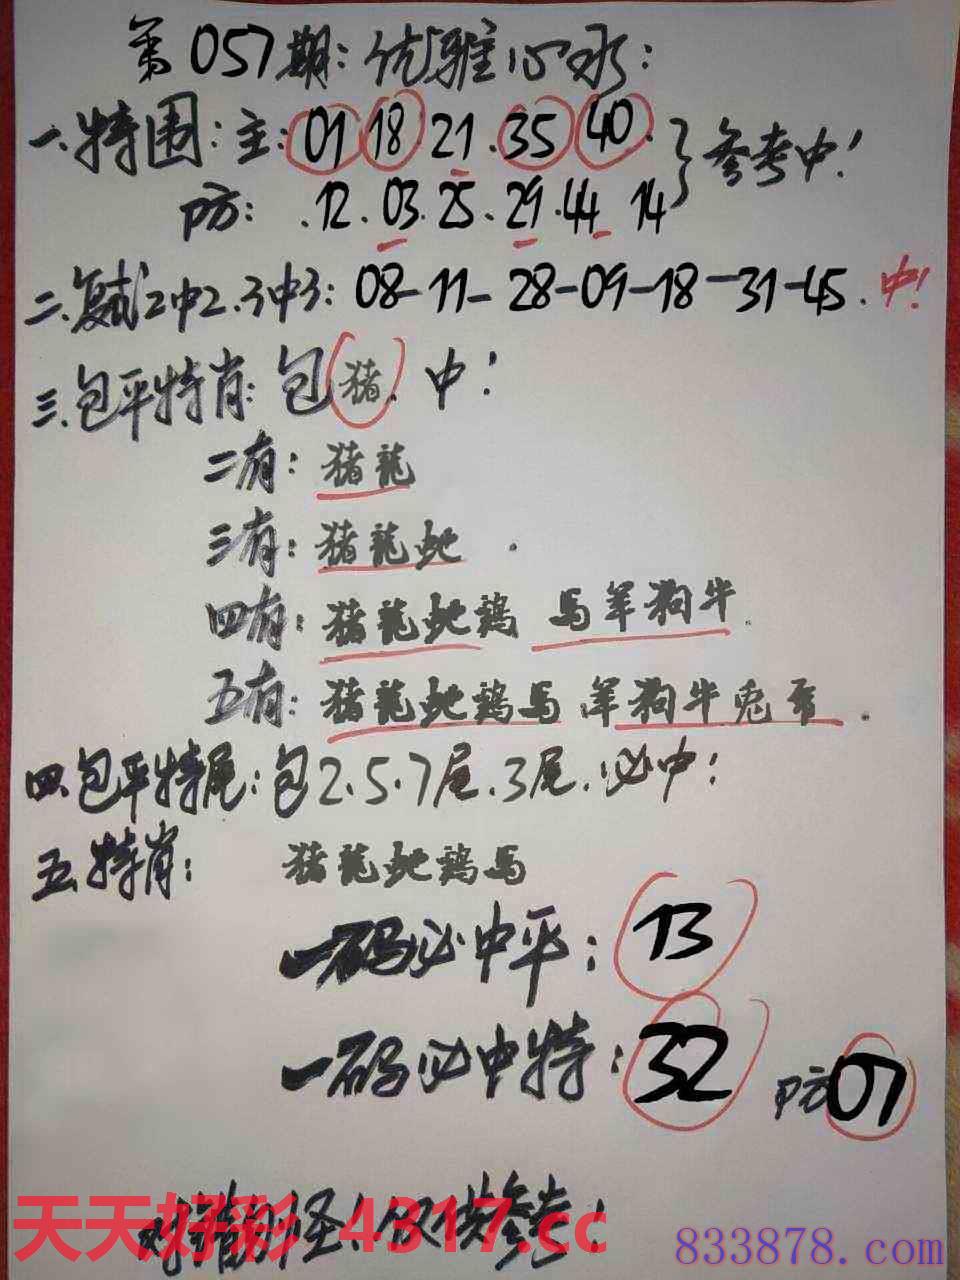 第057期:优雅心水:
一.特围:主:01 18.21.35.40.}参考中!
防:.12.03.25.29.44 14
二.复试2中2.3中3:08-11-28-09-18-31-45.中!
三.包平特肖:包猪.中!
二有:猪龍
三有:猪龍蛇.
四有:猪龍蛇鷄 馬羊狗牛.
五有:猪龍蛇鷄馬 羊狗牛兎.
四.包平特尾:包2.5.7尾.3尾.必中!
五.特肖:猪龍蛇鷄馬
一码必中平:13
一码必中特:32 防07
对错勿怪!仅供参考!
天天好彩 4317.cc
833878.com